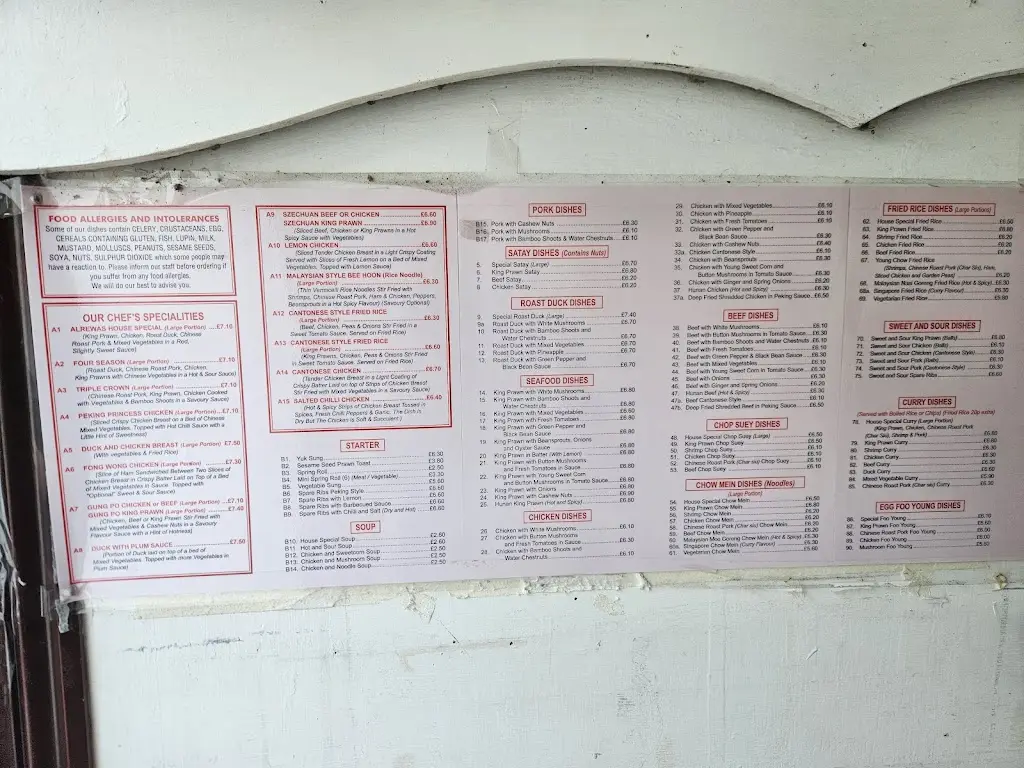 FOOD ALLERGIES AND INTOLERANCES
Some of our dishes contain CELERY, CRUSTACEANS, EGG,
CEREALS CONTAINING GLUTEN, FISH, LUPIN, MILK,
MUSTARD, MOLLUSCS, PEANUTS, SESAME SEEDS,
SOYA, NUTS, SULPHUR DIOXIDE which some people may
have a reaction to. Please inform our staff before ordering if
you suffer from any food allergies.
We will do our best to advise you.
OUR CHEF'S SPECIALITIES
A1 ALREWAS HOUSE SPECIAL (Large Portion) ....£7.10
(King Prawn, Chicken, Roast Duck, Chinese
Roast Pork & Mixed Vegetables in a Red,
Slightly Sweet Sauce)
A2 FOUR SEASON (Large Portion) ....£7.10
(Roast Duck, Chinese Roast Pork, Chicken,
King Prawns with Chinese Vegetables in a Hot & Sour Sauce)
A3 TRIPLE CROWN (Large Portion) ....£7.10
(Chinese Roast Pork, King Prawn, Chicken Cooked
with Vegetables & Bamboo Shoots in a Savoury Sauce)
A4 PEKING PRINCESS CHICKEN (Large Portion)...£7.10
(Sliced Crispy Chicken Breast on a Bed of Chinese
Mixed Vegetables. Topped with Hot Chilli Sauce with a
Little Hint of Sweetness)
A5 DUCK AND CHICKEN BREAST (Large Portion) £7.50
(With vegetables & Fried Rice)
A6 FONG WONG CHICKEN (Large Portion) ....£7.30
(Slice of Ham Sandwiched Between Two Slices of
Chicken Breast in Crispy Batter Laid on Top of a Bed
of Mixed Vegetables in Sauce. Topped with
"Optional" Sweet & Sour Sauce)
A7 GUNG PO CHICKEN or BEEF (Large Portion) ...£7.10
GUNG PO KING PRAWN (Large Portion) ....£7.40
(Chicken, Beef or King Prawn Stir Fried with
Mixed Vegetables & Cashew Nuts in a Savoury
Flavour Sauce with a Hint of Hotness)
A8 DUCK WITH PLUM SAUCE ....£7.50
(Portion of Duck laid on top of a bed of
Mixed Vegetables. Topped with more Vegetables in
Plum Sauce)
A9 SZECHUAN BEEF OR CHICKEN ....£6.60
SZECHUAN KING PRAWN ....£6.90
(Sliced Beef, Chicken or King Prawns in a Hot
Spicy Sauce with Vegetables)
A10 LEMON CHICKEN ....£6.66
(Sliced Tender Chicken Breast in a Light Crispy Coating
Served with Slices of Fresh Lemon on a Bed of Mixed
Vegetables, Topped with Lemon Sauce)
A11 MALAYSIAN STYLE BEE HOON (Rice Noodle)
(Large Portion) ....£6.30
(Thin Vermicelli Rice Noodles Stir Fried with
Shrimps, Chinese Roast Pork, Ham & Chicken, Peppers,
Beansprouts in a Hot Spicy Flavour) (Savoury Optional)
A12 CANTONESE STYLE FRIED RICE
(Large Portion) ....£6.30
(Beef, Chicken, Peas & Onions Stir Fried in a
Sweet Tomato Sauce, Served on Fried Rice)
A13 CANTONESE STYLE FRIED RICE
(Large Portion) ....£6.60
(King Prawns, Chicken, Peas & Onions Stir Fried
in Sweet Tomato Sauce, Served on Fried Rice)
A14 CANTONESE CHICKEN ....£6.70
(Tender Chicken Breast in a Light Coating of
Crispy Batter Laid on top of Strips of Chicken Breast
Stir Fried with Mixed Vegetables in a Savoury Sauce)
A15 SALTED CHILLI CHICKEN ....£6.40
(Hot & Spicy Strips of Chicken Breast Tossed in
Spices, Fresh Chilli Peppers & Garlic, The Dish is
Dry But The Chicken Is Soft & Succulent)
STARTER
B1. Yuk Sung ....£6.30
B2. Sesame Seed Prawn Toast ....£3.80
B3. Spring Roll ....£2.50
B4. Mini Spring Roll (6) (Meat / Vegetable) ....£3.30
B5. Vegetable Sung ....£5.60
B6. Spare Ribs Peking Style ....£5.60
B7. Spare Ribs with Lemon ....£5.60
B8. Spare Ribs with Barbecued Sauce ....£5.60
B9. Spare Ribs with Chilli and Salt (Dry and Hot) ....£5.60
SOUP
B10. House Special Soup ....£2.60
B11. Hot and Sour Soup ....£2.60
B12. Chicken and Sweetcorn Soup ....£2.50
B13. Chicken and Mushroom Soup ....£2.50
B14. Chicken and Noodle Soup ....£2.50
PORK DISHES
B15. Pork with Cashew Nuts ....£6.30
B16. Pork with Mushrooms ....£6.10
B17. Pork with Bamboo Shoots & Water Chestnuts ....£6.10
SATAY DISHES (Contains Nuts)
5. Special Satay (Large) ....£6.70
6. King Prawn Satay ....£6.80
7. Beef Satay ....£6.20
8. Chicken Satay ....£6.20
ROAST DUCK DISHES
9. Special Roast Duck (Large) ....£7.40
9a Roast Duck with White Mushrooms ....£6.70
10. Roast Duck with Bamboo Shoots and
Water Chestnuts ....£6.70
11. Roast Duck with Mixed Vegetables ....£6.70
12. Roast Duck with Pineapple ....£6.70
13. Roast Duck with Green Pepper and
Black Bean Sauce ....£6.70
SEAFOOD DISHES
14. King Prawn with White Mushrooms ....£6.80
15. King Prawn with Bamboo Shoots and
Water Chestnuts ....£6.80
16. King Prawn with Mixed Vegetables ....£6.80
17. King Prawn with Fresh Tomatoes ....£6.80
18. King Prawn with Green Pepper and
Black Bean Sauce ....£6.80
19. King Prawn with Beansprouts, Onions
and Oyster Sauce ....£6.80
20. King Prawn in Batter (With Lemon) ....£6.80
21. King Prawn with Button Mushrooms
and Fresh Tomatoes in Sauce ....£6.80
22. King Prawn with Young Sweet Corn
and Button Mushrooms in Tomato Sauce ....£6.80
23. King Prawn with Onions ....£6.80
24. King Prawn with Cashew Nuts ....£6.90
25. Hunan King Prawn (Hot and Spicy) ....£6.80
CHICKEN DISHES
26. Chicken with White Mushrooms ....£6.10
27. Chicken with Button Mushrooms
and Fresh Tomatoes in Sauce ....£6.30
28. Chicken with Bamboo Shoots and
Water Chestnuts ....£6.10
29. Chicken with Mixed Vegetables ....£6.10
30. Chicken with Pineapple ....£6.10
31. Chicken with Fresh Tomatoes ....£6.10
32. Chicken with Green Pepper and
Black Bean Sauce ....£6.30
33. Chicken with Cashew Nuts ....£6.40
33a. Chicken Cantonese Style ....£6.10
34. Chicken with Beansprouts ....£6.10
35. Chicken with Young Sweet Corn and
Button Mushrooms in Tomato Sauce ....£6.30
36. Chicken with Ginger and Spring Onions ....£6.20
37. Hunan Chicken (Hot and Spicy) ....£6.30
37a. Deep Fried Shredded Chicken in Peking Sauce ..£6.50
BEEF DISHES
38. Beef with White Mushrooms ....£6.10
39. Beef with Button Mushrooms in Tomato Sauce ....£6.30
40. Beef with Bamboo Shoots and Water Chestnuts ..£6.10
41. Beef with Fresh Tomatoes ....£6.10
42. Beef with Green Pepper & Black Bean Sauce ....£6.30
43. Beef with Mixed Vegetables ....£6.10
44. Beef with Young Sweet Corn in Tomato Sauce ....£6.30
45. Beef with Onions
46. Beef with Ginger and Spring Onions ....£6.20
47. Hunan Beef (Hot & Spicy) ....£6.30
47a. Beef Cantonese Style ....£6.10
47b. Deep Fried Shredded Beef in Peking Sauce ....£6.50
CHOP SUEY DISHES
48. House Special Chop Suey (Large) ....£6.50
49. King Prawn Chop Suey ....£6.50
50. Shrimp Chop Suey ....£6.10
51. Chicken Chop Suey ....£6.10
52. Chinese Roast Pork (Char siu) Chop Suey ....£6.10
53. Beef Chop Suey ....£6.10
CHOW MEIN DISHES (Noodles)
(Large Portion)
54. House Special Chow Mein ....£6.50
55. King Prawn Chow Mein ....£6.80
56. Shrimp Chow Mein ....£6.20
57. Chicken Chow Mein ....£6.20
58. Chinese Roast Pork (Char siu) Chow Mein ....£6.20
59. Beef Chow Mein ....£6.20
60. Malaysian Mee Goreng Chow Mein (Hot & Spicy) ..£6.30
60a. Singapore Chow Mein (Curry Flavour) ....£6.30
61. Vegetarian Chow Mein ....£5.60
FRIED RICE DISHES (Large Portions)
62. House Special Fried Rice ....£6.50
63. King Prawn Fried Rice ....£6.60
64. Shrimp Fried Rice ....£6.20
65. Chicken Fried Rice ....£6.20
66. Beef Fried Rice ....£6.20
67. Young Chow Fried Rice
(Shrimps, Chinese Roast Pork (Char Siu), Ham,
Sliced Chicken and Garden Peas) ....£6.20
68. Malaysian Nasi Goreng Fried Rice (Hot & Spicy) ..£6.30
68a. Singapore Fried Rice (Curry Flavour) ....£6.30
69. Vegetarian Fried Rice
SWEET AND SOUR DISHES
70. Sweet and Sour King Prawn (Balls) ....£6.80
71. Sweet and Sour Chicken (Balls) ....£6.10
72. Sweet and Sour Chicken (Cantonese Style) ....£6.30
73. Sweet and Sour Pork (Balls) ....£6.10
74. Sweet and Sour Pork (Cantonese Style) ....£6.30
75. Sweet and Sour Spare Ribs ....£5.60
CURRY DISHES
(Served with Boiled Rice or Chips) (Fried Rice 20p extra)
78. House Special Curry (Large Portion)
(King Prawn, Chicken, Chinese Roast Pork
(Char Siu), Shrimp & Pork) ....£6.80
79. King Prawn Curry
80. Shrimp Curry
81. Chicken Curry
82. Beef Curry
83. Duck Curry
84. Mixed Vegetable Curry
85. Chinese Roast Pork (Char siu) Curry
EGG FOO YOUNG DISHES
86. Special Foo Young
87. King Prawn Foo Young
88. Chinese Roast Pork Foo Young
89. Chicken Foo Young
90. Mushroom Foo Young